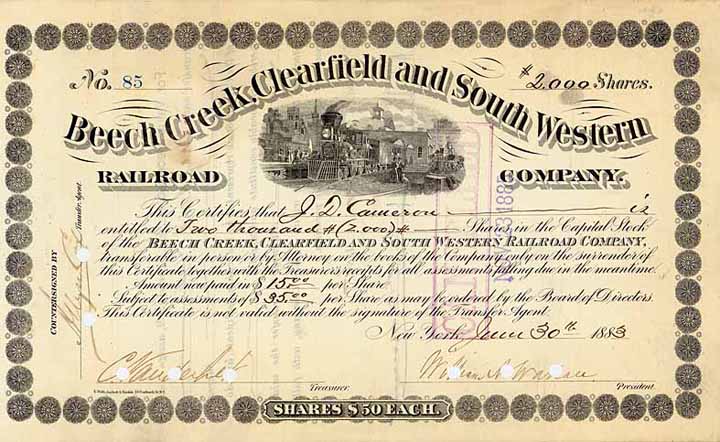 No. 85
$2,000 Shares.
Beech Creek, Clearfield and South Western
RAILROAD COMPANY.
This Certifies that J. D. Cameron is
entitled to Two thousand #(2.000)# Shares in the Capital Stock
of the BEECH CREEK, CLEARFIELD AND SOUTH WESTERN RAILROAD COMPANY,
transferable in person or by Attorney on the books of the Company only on the surrender of
this Certificate together with the Treasurers receipts for all assessments falling due in the meantime.
Amount now paid in $15.00 per Share.
Subject to assessments of $35.00 per Share as may be ordered by the Board of Directors.
This Certificate is not valid without the signature of the Transfer Agent.
New York, June 30th 1883
C. Vanderbilt
Treasurer.
President.
COUNTERSIGNED BY
Transfer Agent.
SHARES $50 EACH.